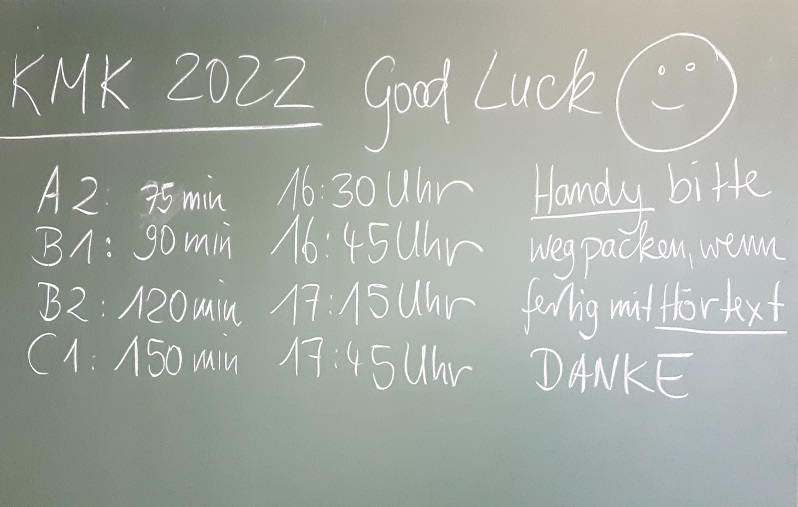 KMK 2022 Good Luck
A2: 75 min 16:30 Uhr Handy bitte
B1: 90 min 16:45 Uhr wegpacken, wenn
B2: 120 min 17:15 Uhr fertig mit Hörtext
C1: 150 min 17:45 Uhr DANKE